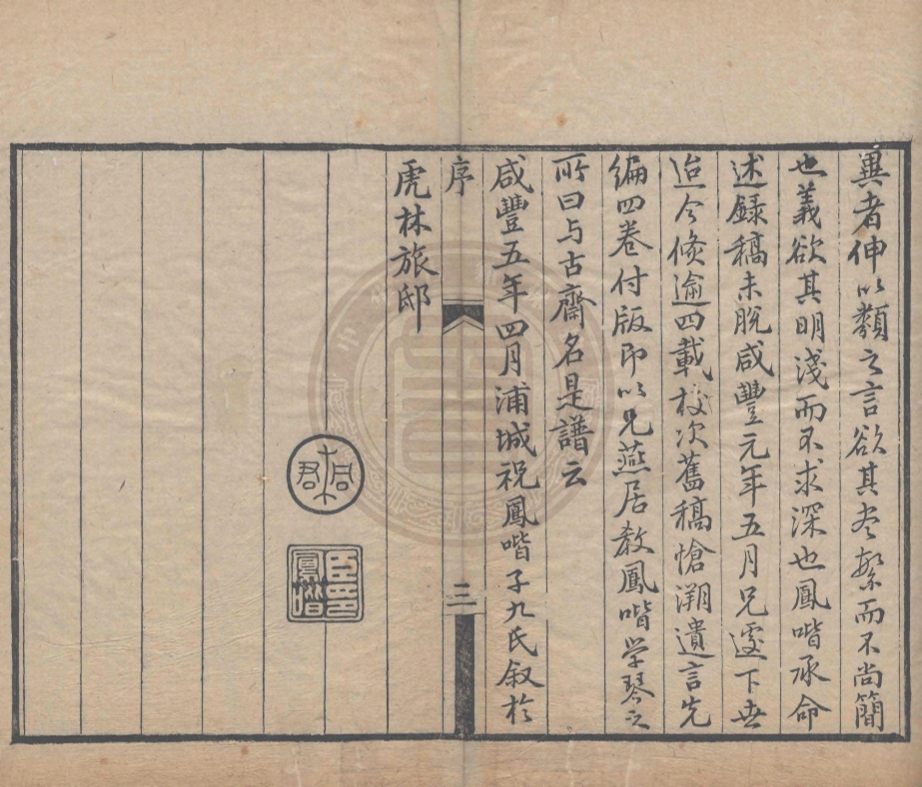 異者伸以類之言欲其尽繁而不尚簡
也義欲其明淺而不求深也鳳喈承命
述録稿未脫咸豐元年五月兄遽下世
迨今倐逾四載校次舊稿愴溯遺言先
編四卷付版即以兄燕居教鳳喈学琴之
所曰与古齋名是譜云
咸豐五年四月浦城祝鳳喈子九氏叙於
序
三
虎林旅邸
桐君
臣印鳳喈